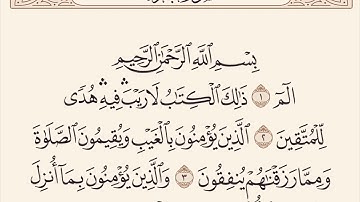 بِسْمِ ٱللَّهِ ٱلرَّحْمَٰنِ ٱلرَّحِيمِ
الٓمٓ ١ ذَٰلِكَ ٱلْكِتَٰبُ لَا رَيْبَ ۛ فِيهِ ۛ هُدًى
لِّلْمُتَّقِينَ ٢ ٱلَّذِينَ يُؤْمِنُونَ بِٱلْغَيْبِ وَيُقِيمُونَ ٱلصَّلَوٰةَ
وَمِمَّا رَزَقْنَٰهُمْ يُنفِقُونَ ٣ وَٱلَّذِينَ يُؤْمِنُونَ بِمَآ أُنزِلَ